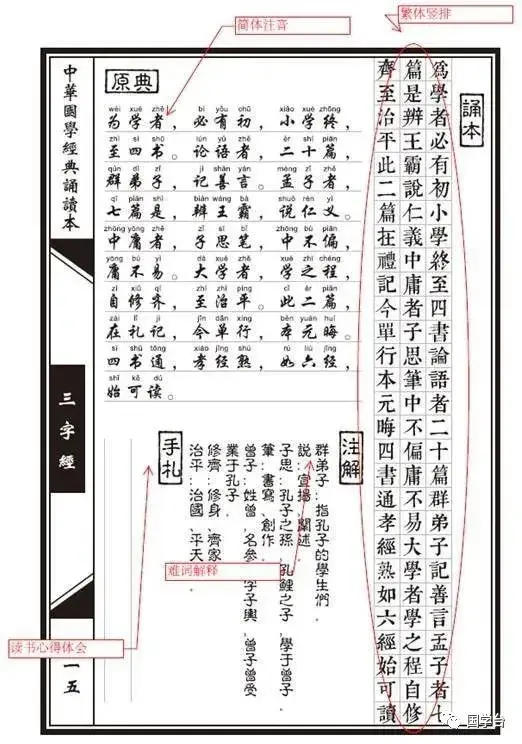 简体注音
繁体竖排
誦本
爲學者必有初小學終至四書論語者二十篇群弟子記善言孟子者七
篇是辨王霸說仁義中庸者子思筆中不偏庸不易大學者學之程自修
齊至治平此二篇在禮記今單行本元晦四書通孝經熟如六經始可讀
原典
wéi xué zhě bì yǒu chū xiǎo xué zhōng
为学者，必有初，小学终，
zhì sì shū lún yǔ zhě èr shí piān
至四书。论语者，二十篇，
qún dì zǐ jì shàn yán mèng zǐ zhě
群弟子，记善言。孟子者，
qī piān shì biàn wáng bà shuō rén yì
七篇是，辨王霸，说仁义。
zhōng yōng zhě zǐ sī bǐ zhōng bù piān
中庸者，子思笔，中不偏，
yōng bú yì dà xué zhě xué zhī chéng
庸不易。大学者，学之程，
zì xiū qí zhì zhì píng cǐ èr piān
自修齐，至治平。此二篇，
zài lǐ jì jīn dān xíng běn yuán huì
在礼记，今单行，本元晦。
sì shū tōng xiào jīng shú rú liù jīng
四书通，孝经熟，如六经，
shǐ kě dú
始可读。
注解
群弟子：指孔子的學生們.
說：宣揚，闡述.
子思：孔子之孫，孔鯉之子，學于曾子.
筆：書寫，創作.
曾子：姓曾，名參，字子輿，曾子曾受
業于孔子.
修齊：修身、齊家
治平：治國、平天
手札
难词解释
读书心得体会
中華國學經典誦讀本
三字經
一五
国学台